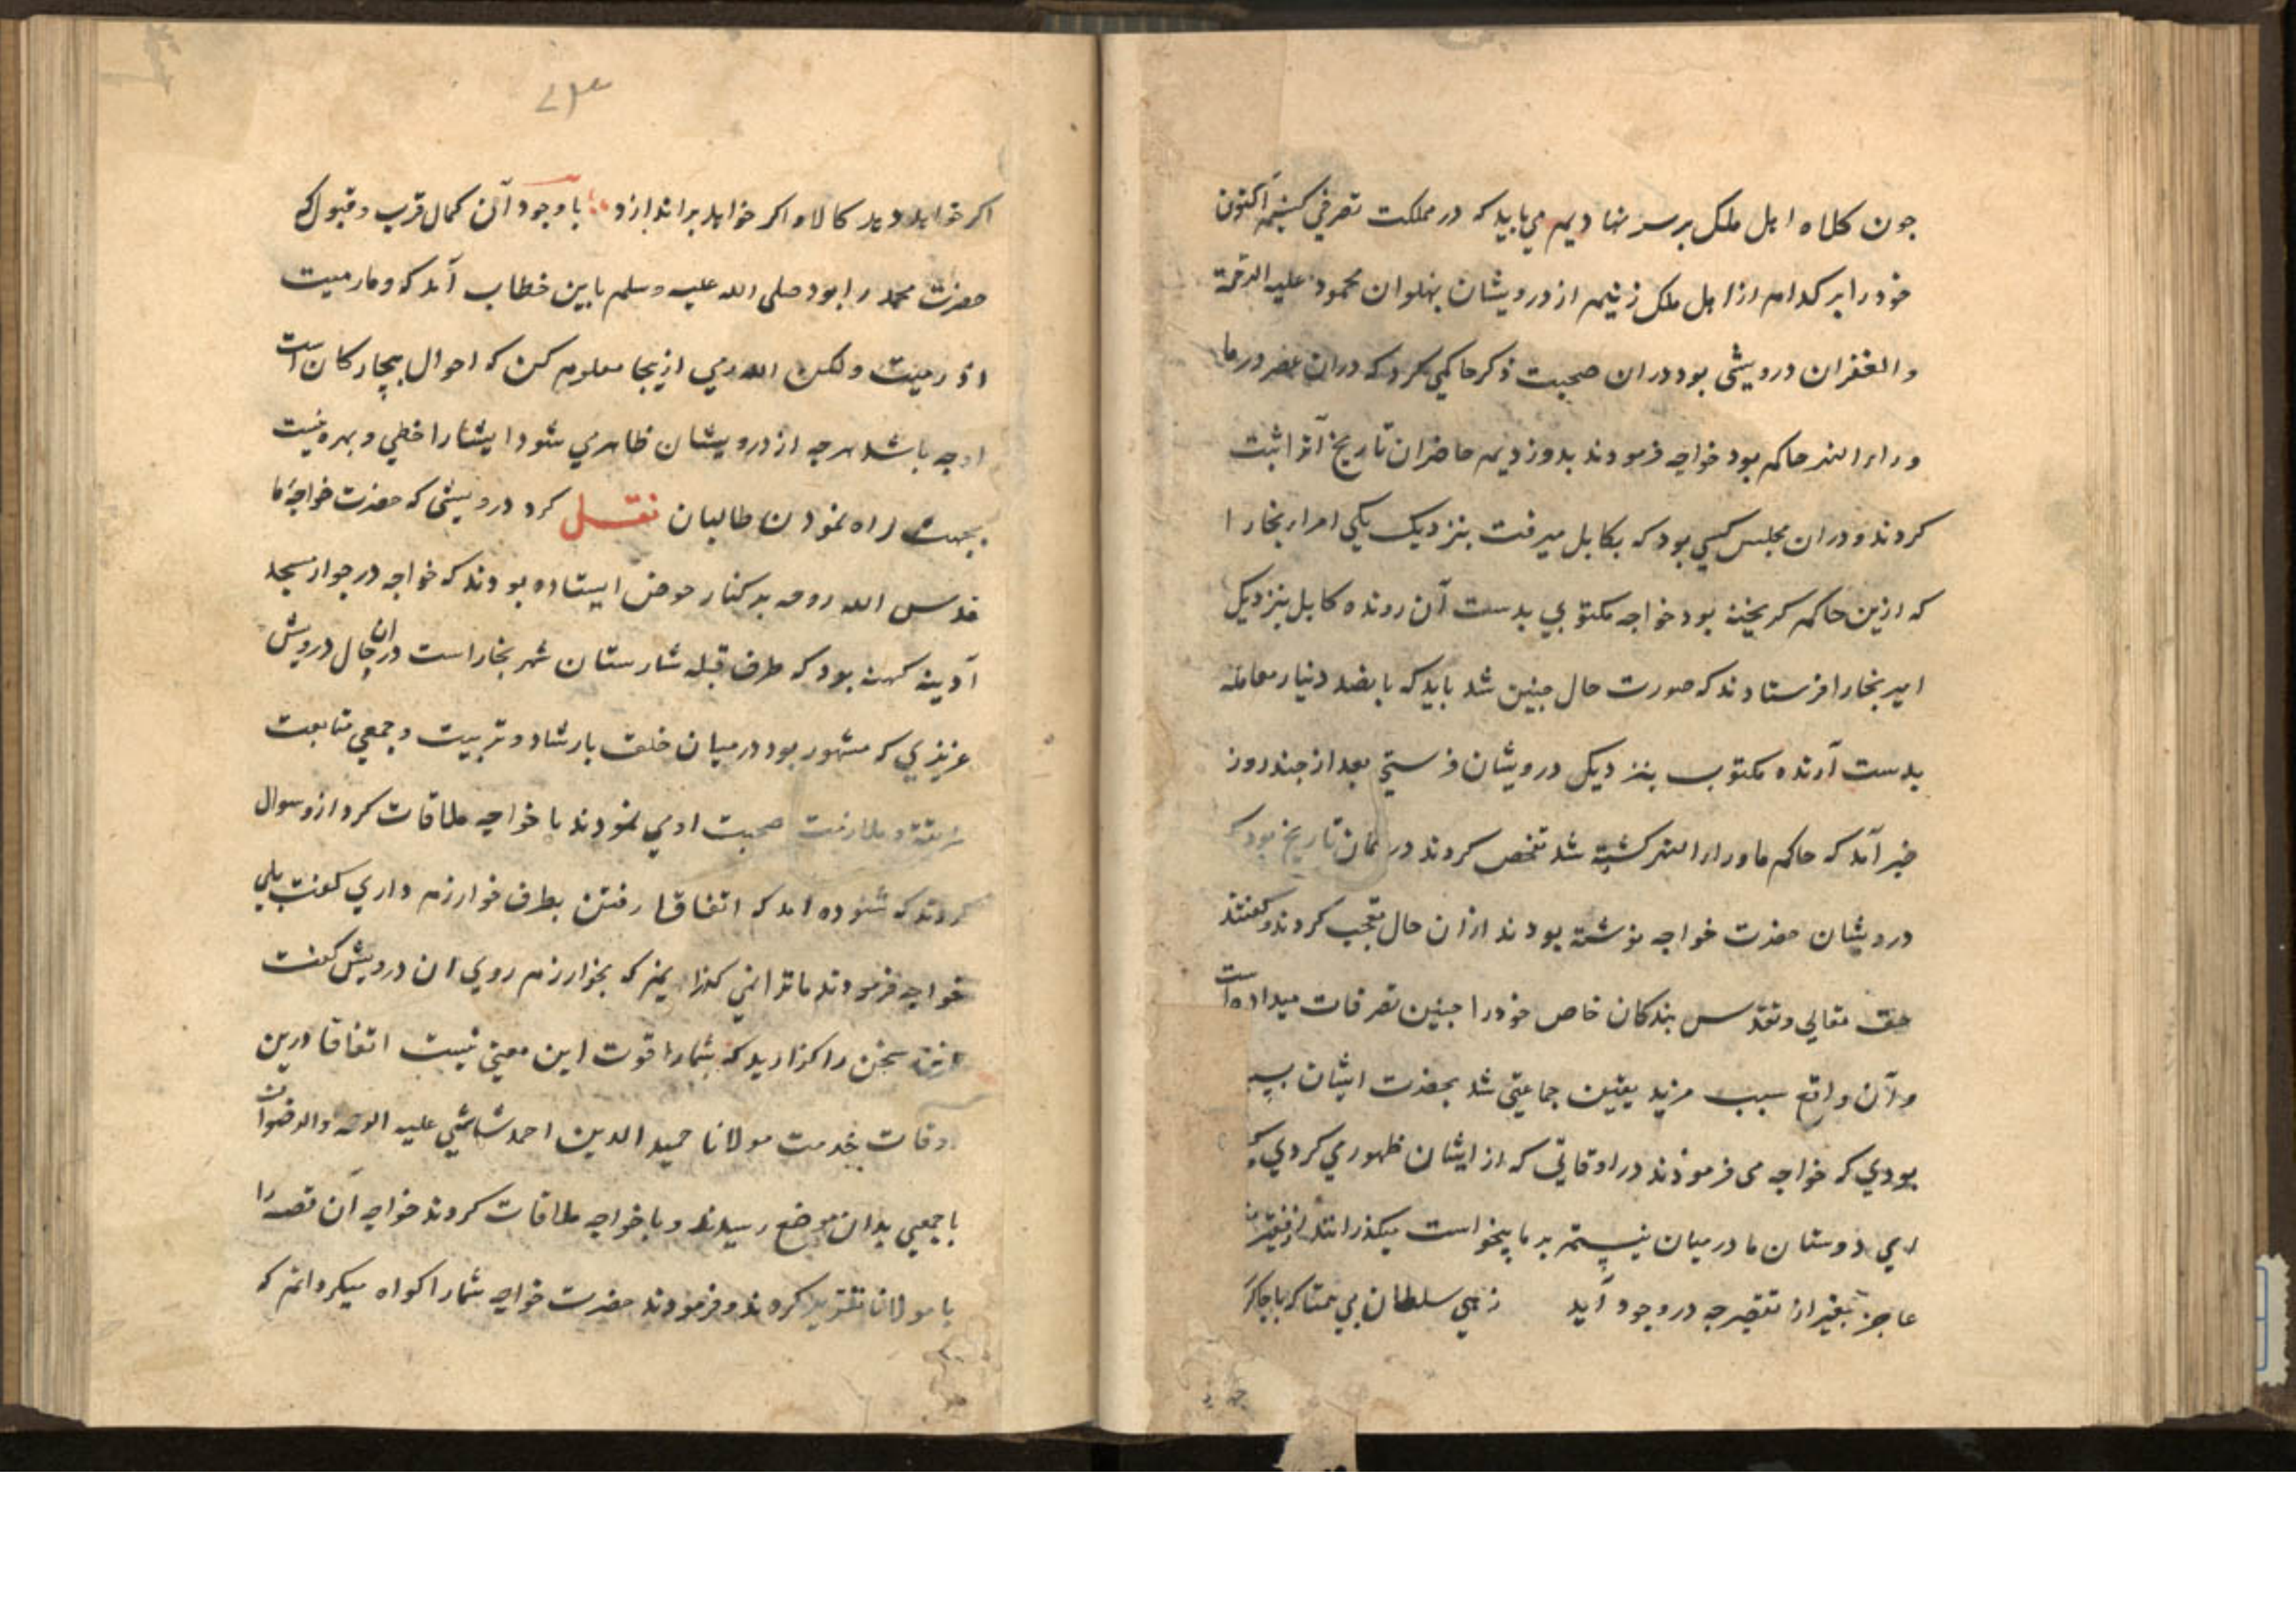 جون کلاه اهل ملک برسر نهادیم می باید که در مملکت تصرفی کنیم اکنون
خود را بر کدام از اهل ملک زنیم از درویشان پهلوان محمود علیه الرحمة
و الغفران درویشی بود دران صحبت ذکر حاکمی کرد که دران عصر در ما
وراء النهر حاکم بود خواجه فرمودند بدو زدیم حاضران تاریخ آنرا ثبت
کردند و دران مجلس کسی بود که بکابل میرفت بنزدیک یکی امراء بخارا
که ازین حاکم کریخته بود خواجه مکتوبی بدست آن رونده کابل بنزدیک
امیر بخارا فرستادند که صورت حال جنین شد باید که پانصد دینار معامله
بدست آرنده مکتوب بنزدیک درویشان فرستی بعد از جند روز
خبر آمد که حاکم ماوراء النهر کشته شد تفحص کردند در همان تاریخ بود که
درویشان حضرت خواجه نوشته بودند ازان حال تعجب کردند و کفتند
حق تعالی و تقدس بندکان خاص خود را جنین تصرفات میداده است
و آن واقع سبب مزید یقین جماعتی شد بحضرت ایشان
بودی که خواجه می فرمودند در اوقاتی که از ایشان ظهور می کردی
ای دوستان ما درمیان نیستیم بر ما بیخواست میکذرانند از فقیر
عاجز بغیر از تقصیر جه در وجود آید زهی سلطان بی همتا که با جاکر
۷۳
اکر خواهد دهد کالا و اکر خواهد براندازد با وجود آن کمال قرب و قبول که
حضرت محمد را بود صلی الله علیه وسلم باین خطاب آمد که وما رمیت
اذ رمیت ولکن الله رمی ازینجا معلوم کن که احوال بیچارکان است
اوجه باشد هرجه از درویشان ظاهر می شود ایشانرا خطی و بهره نیست
بجهت راه نمودن طالبان نقل کرد درویشی که حضرت خواجهٔ ما
قدس الله روحه بر کنار حوض ایستاده بودند که خواجه در جوار مسجد
آدینه کهنه بود که طرف قبله شارستان شهر بخاراست دران حال درویش
عزیزی که مشهور بود درمیان خلق بارشاد و تربیت و جمعی متابعت
طریقه و ملازمت صحبت اومی نمودند با خواجه ملاقات کرد ازو سوال
کردند که شنوده امد که اتفاقا رفتن بطرف خوارزم داری کفت بلی
خواجه فرمودند ما ترا نمی کذاریم که بخوارزم روی ان درویش کفت
سخن را کذارید که شمارا قوت این معنی نیست اتفاقا درین
اوقات خدمت مولانا حمید الدین احمد شاشی علیه الرحمه والرضوان
با جمعی بدان موضع رسیدند و با خواجه ملاقات کردند خواجه آن قصه را
با مولانا تقریر کردند و فرمودند حضرت خواجه شمارا کواه میکردانم که